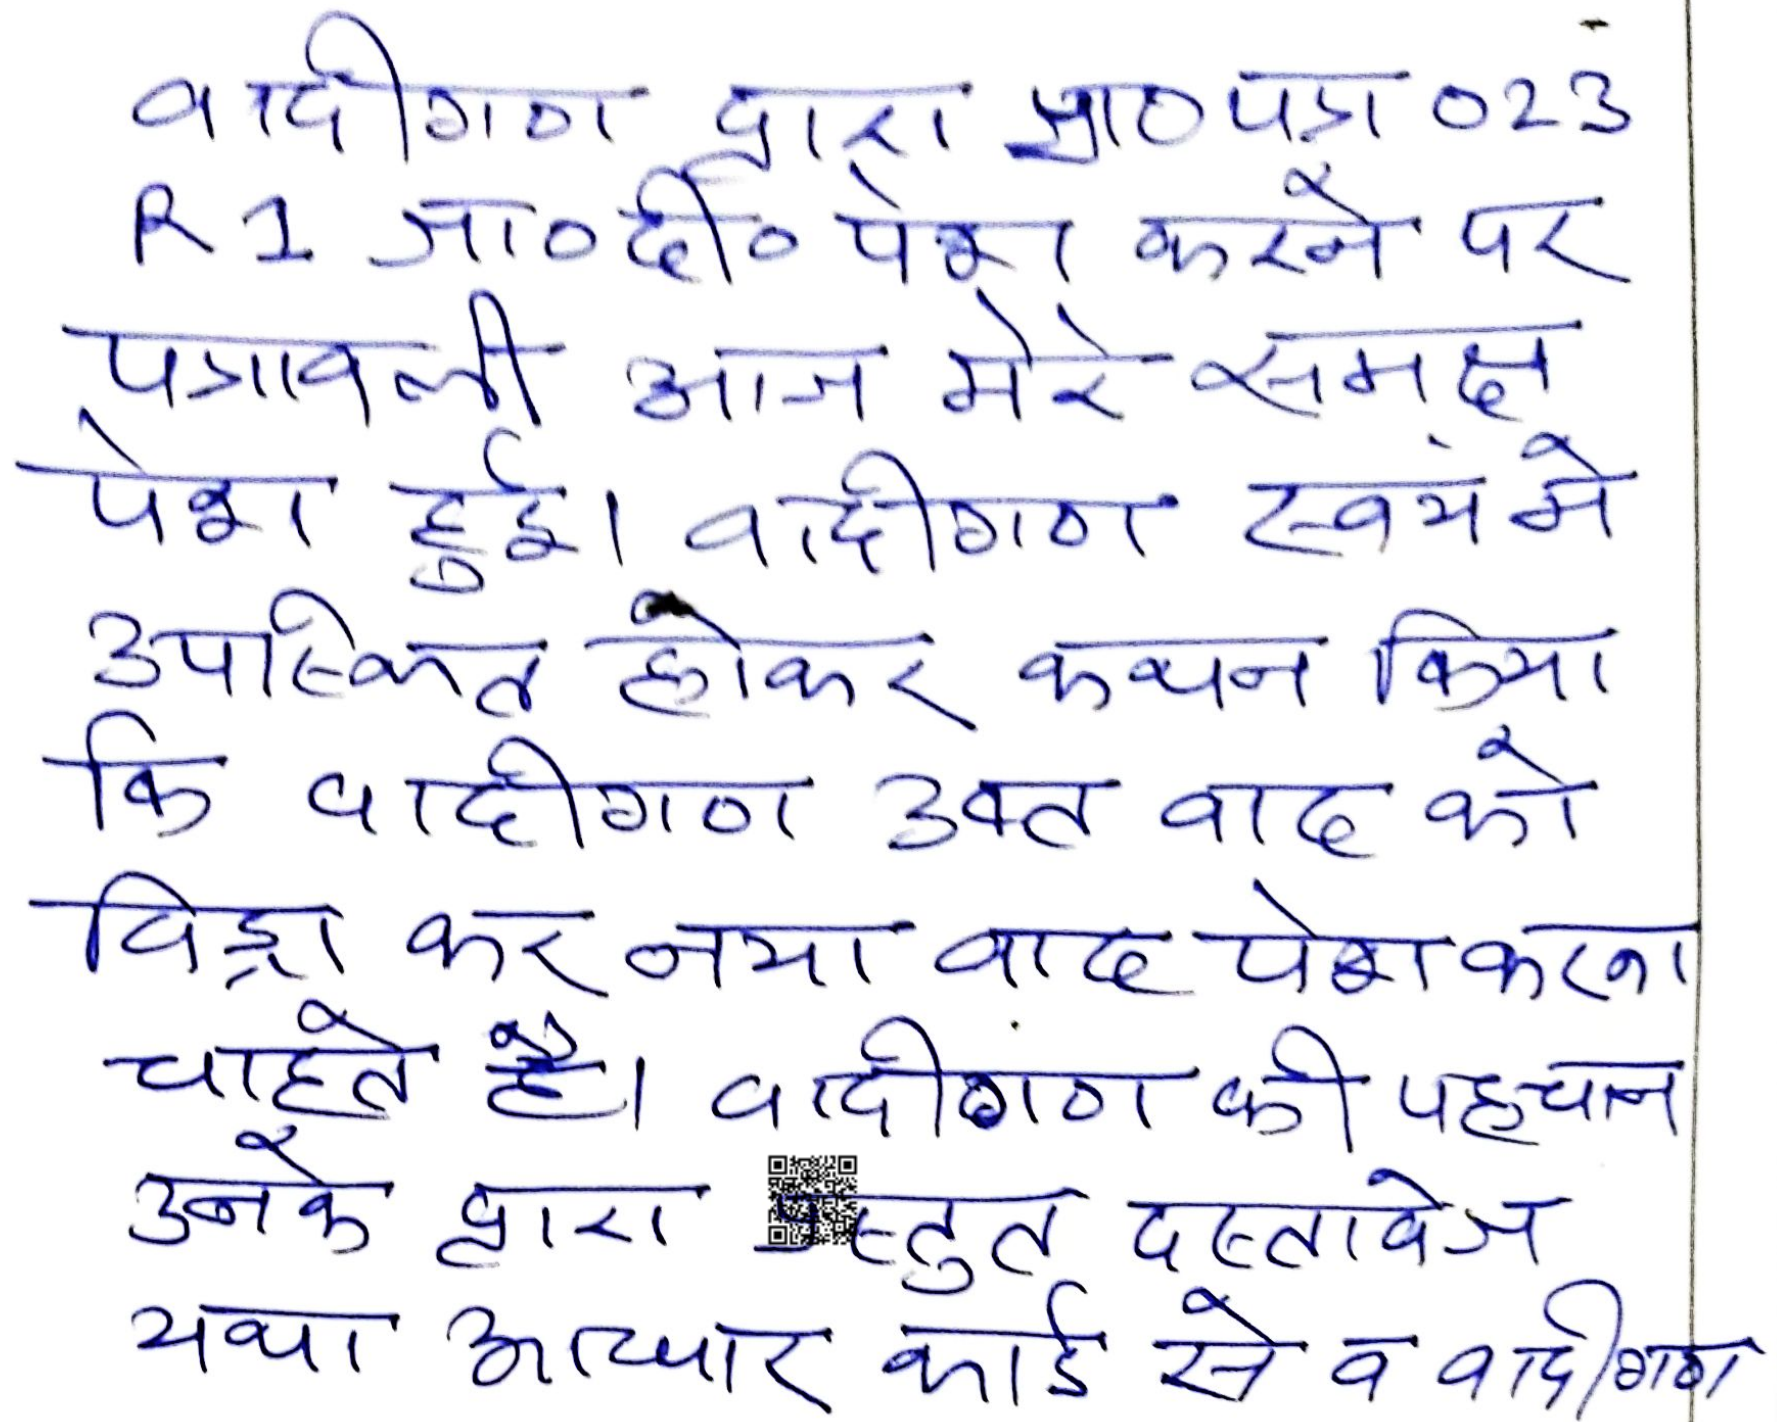 वादीगण द्वारा प्रा०पत्र O23
R1 जा०दी० पेश करने पर
पत्रावली आज मेरे समक्ष
पेश हुई। वादीगण स्वयं ने
उपस्थित होकर कथन किया
कि वादीगण उक्त वाद को
विड्रा कर नया वाद पेश करना
चाहते है। वादीगण की पहचान
उनके द्वारा प्रस्तुत दस्तावेज
यथा आधार कार्ड से व वादीगण